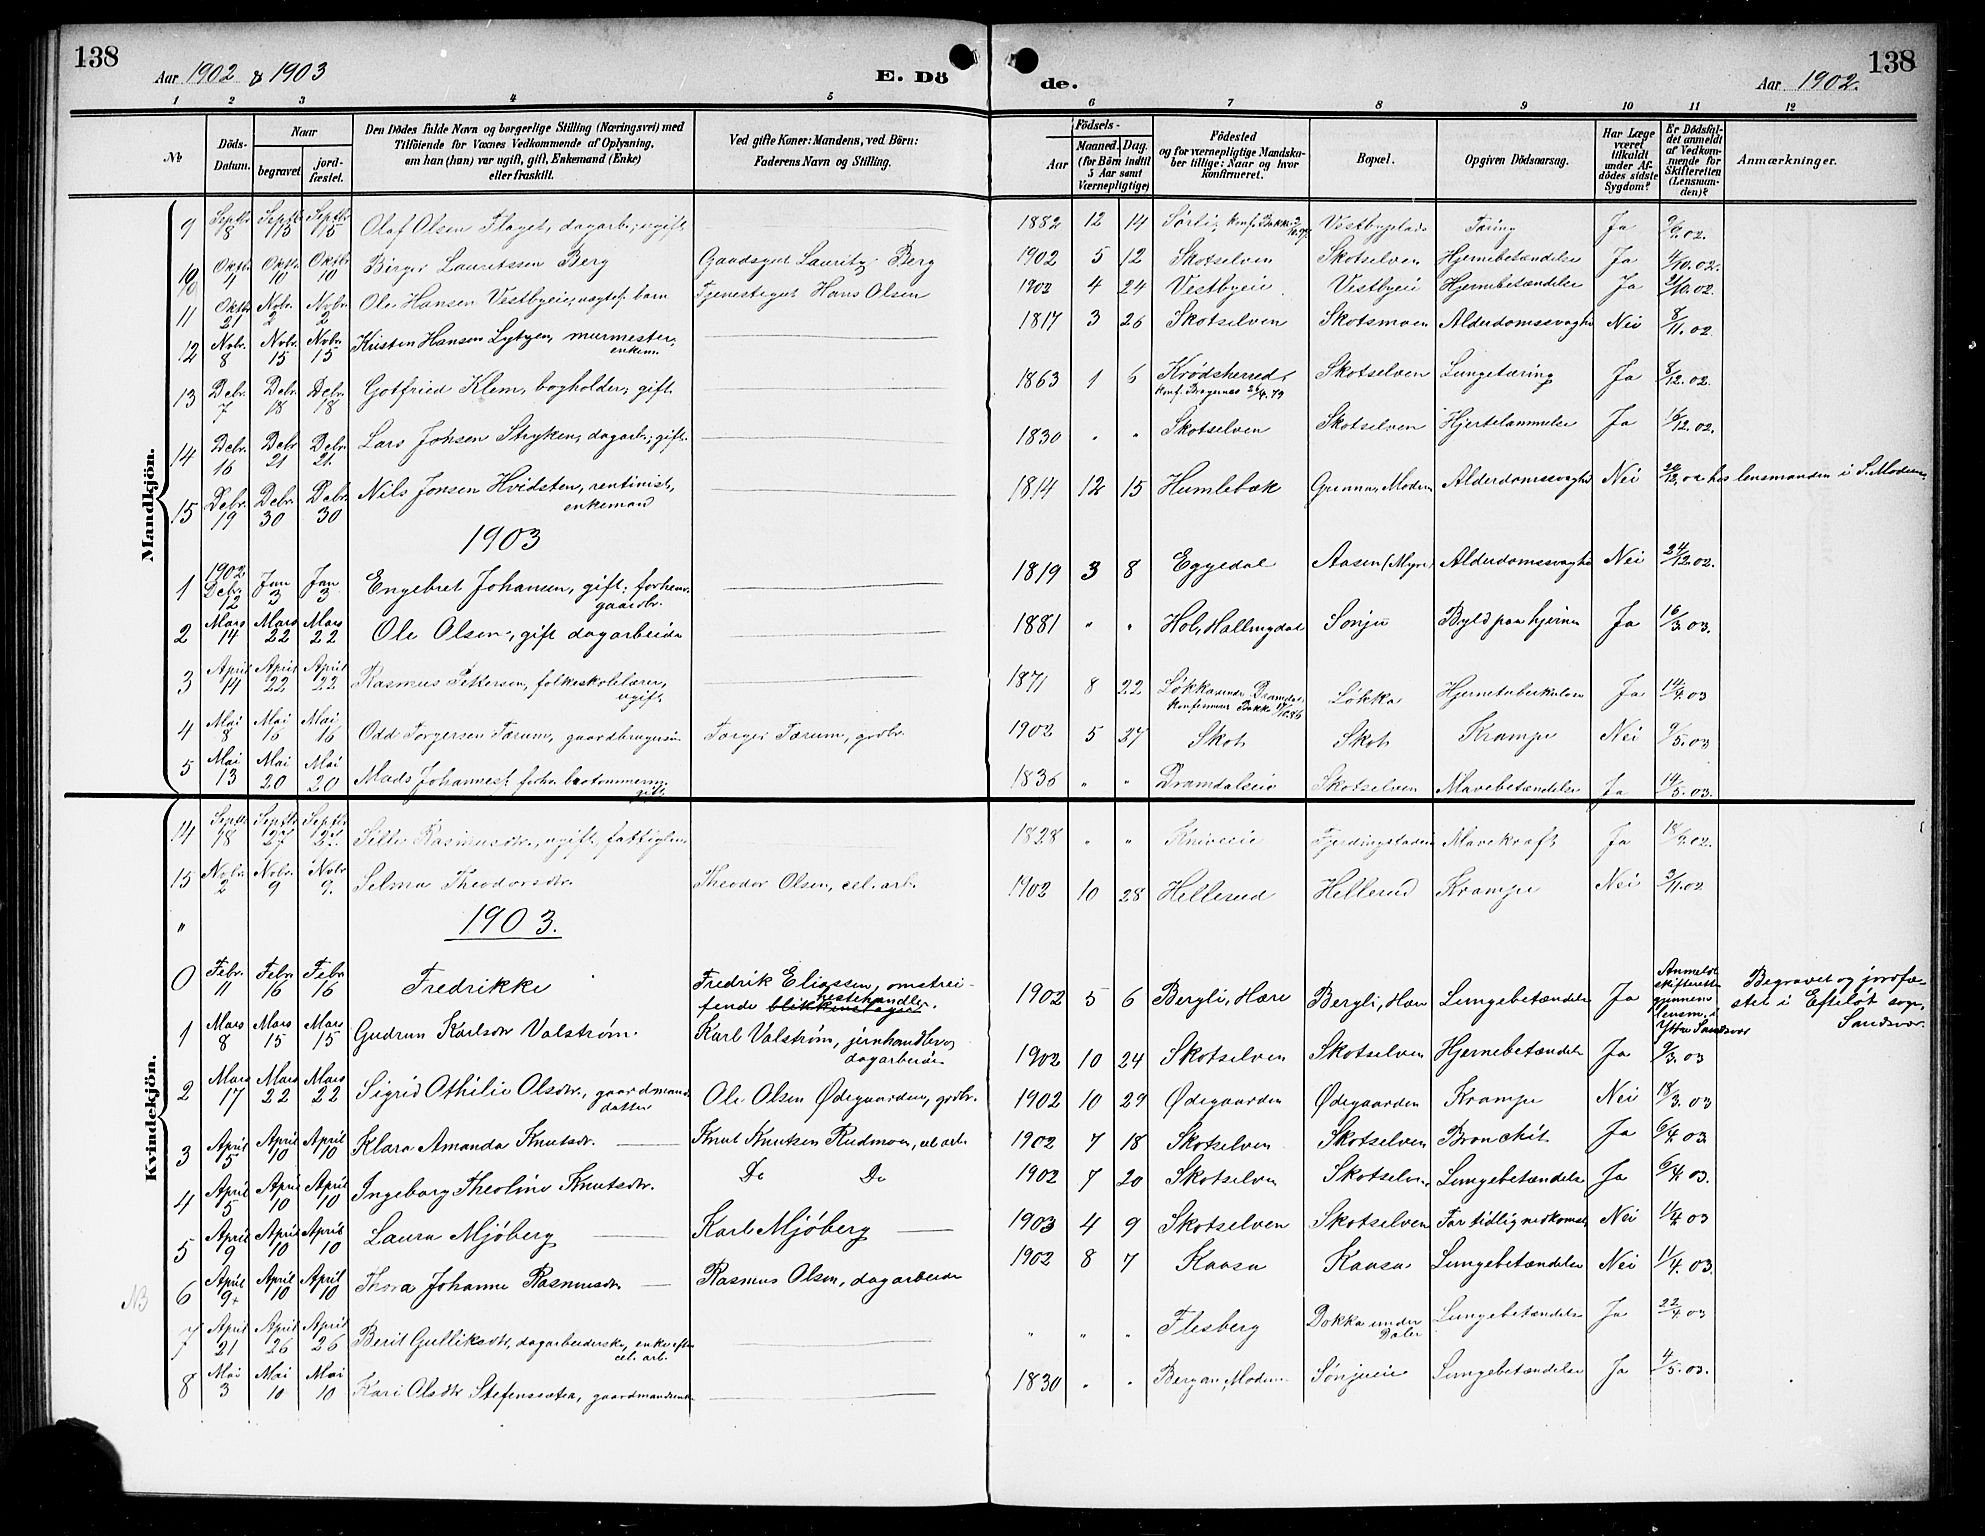 138
Aar 1902 & 1903
E. Dö
de.
Aar 1902.
138
1 2 3 4 5 6 7 8 9 10 11 12
No
Döds-Datum.
Naar
begravet
jord-fæstet.
Den Dödes fulde Navn og borgerlige Stilling (Næringsvei) med
Tilföiende for Voxnes Vedkommende af Oplysning,
om han (hun) var ugift, gift, Enkemand (Enke)
eller fraskilt.
Ved gifte Koner: Mandens, ved Börn:
Faderens Navn og Stilling.
Födsels-
Aar
Maaned. Dag.
(for Börn indtil
5 Aar samt
Værnepligtige)
Födested
og for værnepligtige Mandska-
ber tillige: Naar og hvor
konfirmeret.
Bopæl.
Opgiven Dödsaarsag.
Har Læge
været
tilkaldt
under Af-
dödes sidste
Sygdom?
Er Dödsfal-
det anmeldt
af Vedkom-
mende for
Skifteretten
(Lensman-
den)?
Anmærkninger.
Mandkjön.
9 Septbr 8 Septbr 13 Septbr 15 Olaf Olsen Flaget, dagarb., ugift 1882 12 14 Sørli, konf. Bakke Vestbyplads Tæring Ja 9/9.02.
10 Oktbr 4 Oktbr 10 Oktbr 10 Birger Lauritssen Berg Gaardsgut Lauritz Berg 1902 5 12 Skotselven Skotselven Hjernebetændelse Ja 4/10.02.
11 Oktbr 21 Nobr. 2 Nobr. 2 Ole Hansen Vestbyeie, uægtef. barn Tjenestegut Hans Olsen 1902 4 24 Vestbyeie Vestbyeie Hjernebetændelse Ja 21/10.02.
12 Nobr. 8 Nobr. 15 Nobr. 15 Kristen Hansen murmester, enkem. 1817 3 26 Skotselven Skotsmoen Alderdomssvaghed Nei 8/11.02.
13 Debr. 7 Debr. 18 Debr. 18 Gotfried Klem, bogholder, gift 1863 1 6 Krødsherred konf. Bragernes 4.79 Skotselven Lungetæring Ja 8/12.02.
14 Debr. 16 Debr. 21 Debr. 21. Lars Johsen Stryken, dagarb., gift. 1830 " " Skotselven Skotselven Hjertelammelse Ja 16/12.02.
15 Debr. 19 Debr. 30 Debr. 30 Nils Jonsen Hvidsten, rentinist, enkemand 1814 12 15 Humlebæk Grinna, Modum Alderdomssvaghed Nei 20/12.02 hos lensmanden i S. Modum
1903
1 1902 Debr. 12 Jan 3 Jan 3 Engebret Johansen, gift. forhenv. gaardbr. 1819 3 8 Eggedal Aasen (Myre) Alderdomssvaghed Nei 24/12.02.
2 Mars 14 Mars 22 Mars 22 Ole Olsen, gift dagarbeider 1881 " " Hol, Hallingdal Sonju Byld paa hjernen Ja 16/3.03.
3 April 14 April 22 April 22 Rasmus Pettersen, folkeskolelærer, ugift 1871 8 22 Løkka under Dramdal, konfirmeret Bakke 17/10.86 Løkka Hjernetuberkulose Ja 14/4.03
4 Mai 8 Mai 16 Mai 16 Odd Torgersen Færum, gaardbrugersøn Torger Færum, grdbr. 1902 5 27 Skot Skot Krampe Nei 9/5.03
5 Mai 13 Mai 20 Mai 20 Mads Johannes. forhv. brotømmerm., gift 1836 " " Dramdalseie Skotselven Mavebetændelse Ja 14/5.03.
Kvindekjön.
14 Septbr 18 Septbr 27 Septbr 27. Rasmusdtr., ugift, fattiglem 1828 " " Knivseie Fjerdingstadeie Mavekræft Ja 18/9.02.
15 Nobr. 2 Nobr. 9 Nobr. 9. Selma Theodorsdtr. Theodor Olsen, cel. arb. 1902 10 28 Hellerud Hellerud Krampe Nei 3/11.02
"
1903.
0 Febr. 11 Febr. 16 Febr. 16 Fredrikke Fredrik Eliassen, omstrei-
fende blikkenslager hestehandler. 1902 5 6 Bergli, Hære Bergli, Hære Lungebetændelse Ja Anmeldt skifteretten gjennem lensm. i Ytre Sandsvær Begravet og jordfæ-
stet i Efteløt sogn,
Sandsvær.
1 Mars 8 Mars 15 Mars 15 Gudrun Karlsdtr Valstrøm. Karl Valstrøm, jernhandler og dagarbeider 1902 10 24 Skotselven Skotselven Hjernebetændelse Ja 9/3.03
2 Mars 17 Mars 22 Mars 22 Sigrid Othilie Olsdtr., gaardmands datter Ole Olsen Ødegaarden, grdbr. 1902 10 29 Ødegaarden Ødegaarden Krampe Nei 18/3.03
3 April 5 April 10 April 10 Klara Amanda Knutsdtr. Knut Knutsen Rudmoen, cel. arb. 1902 7 18 Skotselven Skotselven Bronchit Ja 6/4.03
4 April 5 April 10 April 10 Ingeborg Theoline Knutsdtr. Do Do 1902 7 20 Skotselven Skotselven Lungebetændelse Ja 6/4.03.
5 April 9 April 10 April 10 Laura Mjöberg Karl Mjöberg 1903 4 9 Skotselven Skotselven For tidlig nedkomst Nei 11/4.03
NB 6 April 9+ April 10 April 10 Thora Johanne Rasmusdtr Rasmus Olsen, dagarbeider 1902 8 7 Kaasa Kaasa Lungebetændelse Nei 11/4.03.
7 April 21 April 26 April 26 Berit Gulliksdtr, dagarbeiderske, enke efter cel. arb. " " " Flesberg Dokka under Daler Lungebetændelse Ja 22/4.03
8 Mai 3 Mai 10 Mai 10 Kari Olsdtr Stefenssæter, gaardmandsenke 1830 " " Bergan, Modum Sønjueie Lungebetændelse Ja 4/5.03.